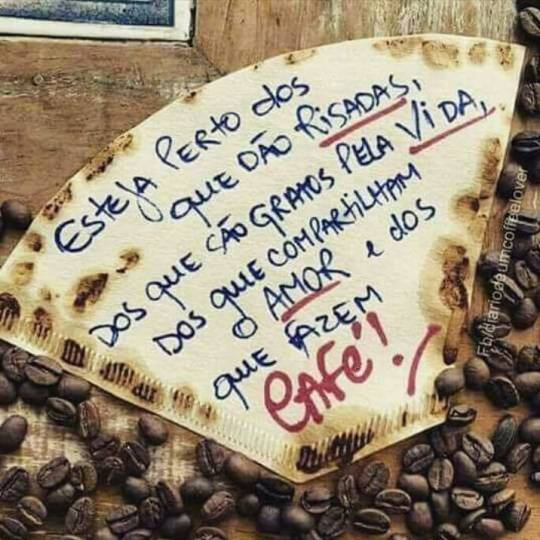 Esteja Perto dos
que dão Risadas,
dos que são gratos pela Vida,
dos que compartilham
o Amor e dos
que fazem
Café!
Fb/diariodeumcoffeelover